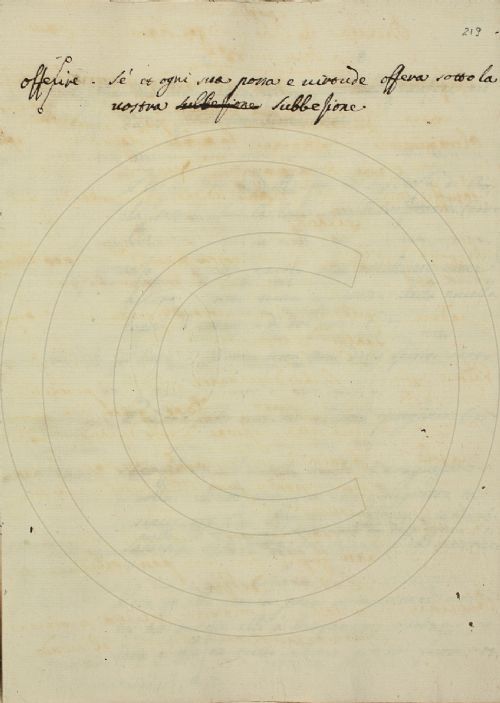 219
offerire. Sé et ogni sua possa e virtude offera sotto la
vostra subbessione subbessione